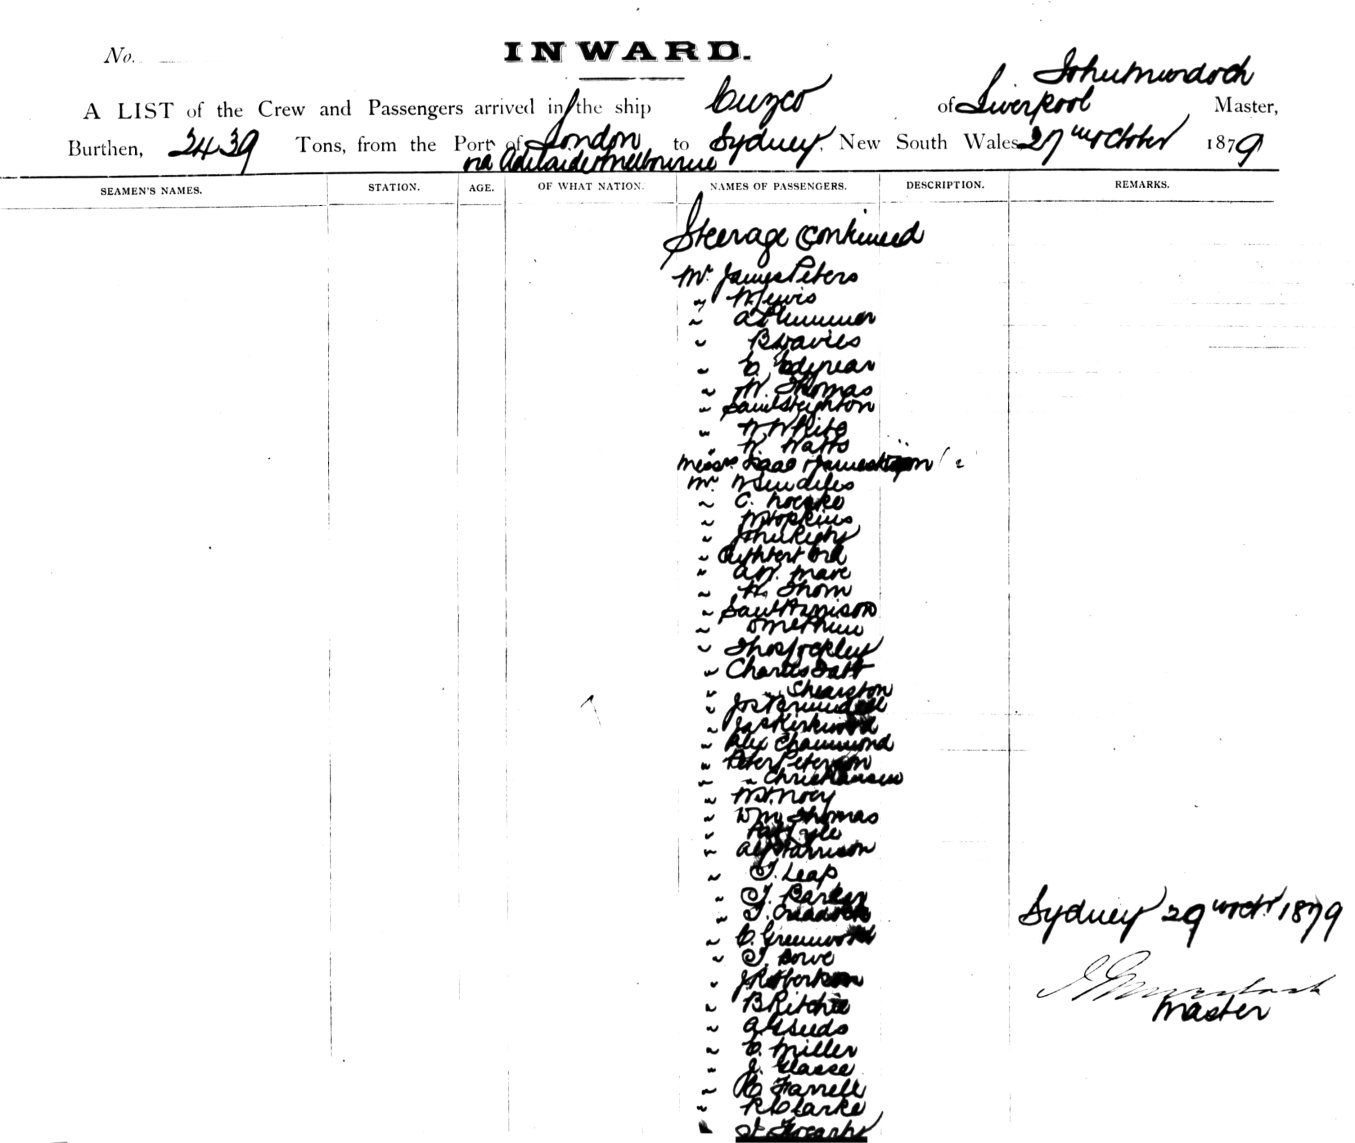 No. INWARD.
John Murdoch
A LIST of the Crew and Passengers arrived in the ship Cuzco of Liverpool Master,
Burthen, 2439 Tons, from the Port of London to Sydney, New South Wales 27th October 1879
via Adelaide & Melbourne
SEAMEN'S NAMES. STATION. AGE. OF WHAT NATION. NAMES OF PASSENGERS. DESCRIPTION. REMARKS.
Steerage continued
Mr James Peters
" W Lewis
" A Plummer
" B Davies
"
" W Thomas
" Saml Leighton
" W White
" W Watts
Messrs Isaac & James
Mr W
" C.
" W Hopkins
" John Rigby
" Cuthbert Ord
" A W. Mare
" H. Thom
" Saml Arnison
" Methuen
" Thos Jockley
" Charles Tatt
" " Shearston
" Jos Brundell
" Jas Kirkwood
" Alex Chammond
" Peter Peterson
" " Christiansen
" W H. Noey
" Wm Thomas
" Pat Lyle
" Alf Harrison
" T. Leap
" T. Barker
" T. Craddock
" C. Greenwood
" T. Bowe
" J Robertson
" B Ritchie
" A G Seeds
" C. Miller
" J. Glasse
" C Farrell
" R Clarke
"
Sydney 29th Octr 1879
J Murdoch
Master